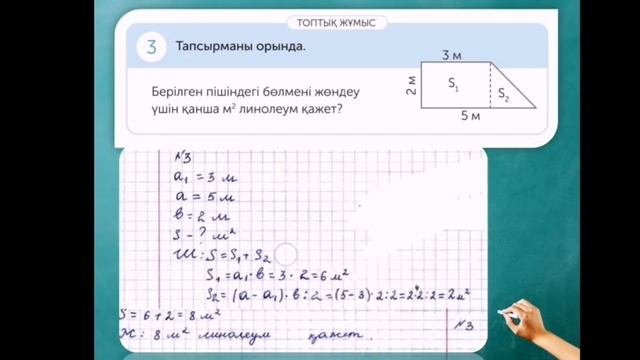 ТОПТЫҚ ЖҰМЫС
3 Тапсырманы орында.
Берілген пішіндегі бөлмені жөндеу
үшін қанша м² линолеум қажет?
3 м
2 м
S₁
S₂
5 м
№3
a₁ = 3 м
a = 5 м
в = 2 м
S - ? м²
Ш: S = S₁ + S₂
S₁ = a₁ · в = 3 · 2 = 6 м²
S₂ = (a - a₁) · в : 2 = (5 - 3) · 2 : 2 = 2 · 2 : 2 = 2 м²
S = 6 + 2 = 8 м²
Ж: 8 м² линолеум қажет.
№3